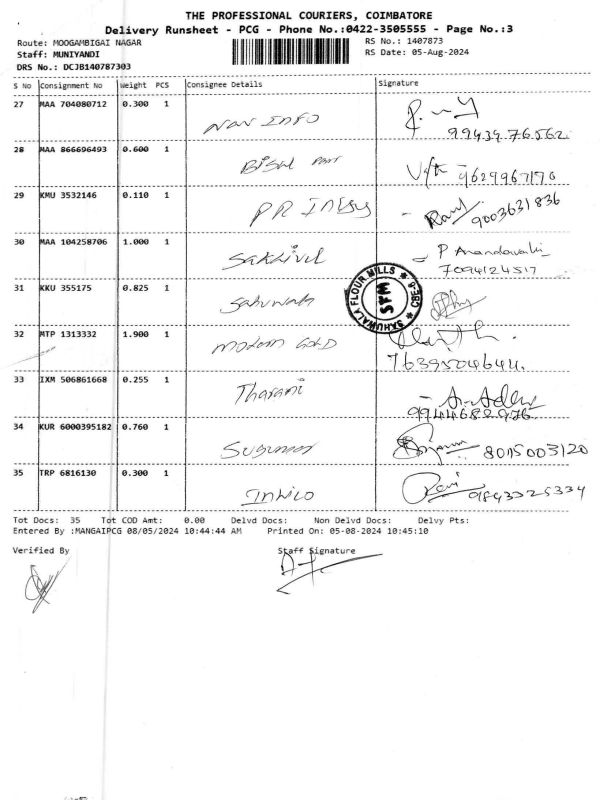 THE PROFESSIONAL COURIERS, COIMBATORE
Delivery Runsheet - PCG - Phone No.:0422-3505555 - Page No.:3
Route: MOOGAMBIGAI NAGAR
RS No.: 1407873
Staff: MUNIYANDI
RS Date: 05-Aug-2024
DRS No.: DCJB140787303
S No Consignment No Weight PCS Consignee Details Signature
27 MAA 704080712 0.300 1 Nav INFO
99439 76562
28 MAA 866696493 0.600 1
9629967170
29 KMU 3532146 0.110 1 PR
9003631836
30 MAA 104258706 1.000 1 Sakthivel P Anandavalli
7094124517
31 KKU 355175 0.825 1 Sahuwala
SAHUWALA FLOUR MILLS ★ CBE-9 ★
SFM
32 MTP 1313332 1.900 1 modern GOLD
7639504644.
33 IXM 506861668 0.255 1 Tharani
9944682976
34 KUR 6000395182 0.760 1 Sugumar 8015003120
35 TRP 6816130 0.300 1 Ravi 9843325334
Tot Docs: 35 Tot COD Amt: 0.00 Delvd Docs: Non Delvd Docs: Delvy Pts:
Entered By :MANGAIPCG 08/05/2024 10:44:44 AM Printed On: 05-08-2024 10:45:10
Verified By Staff Signature